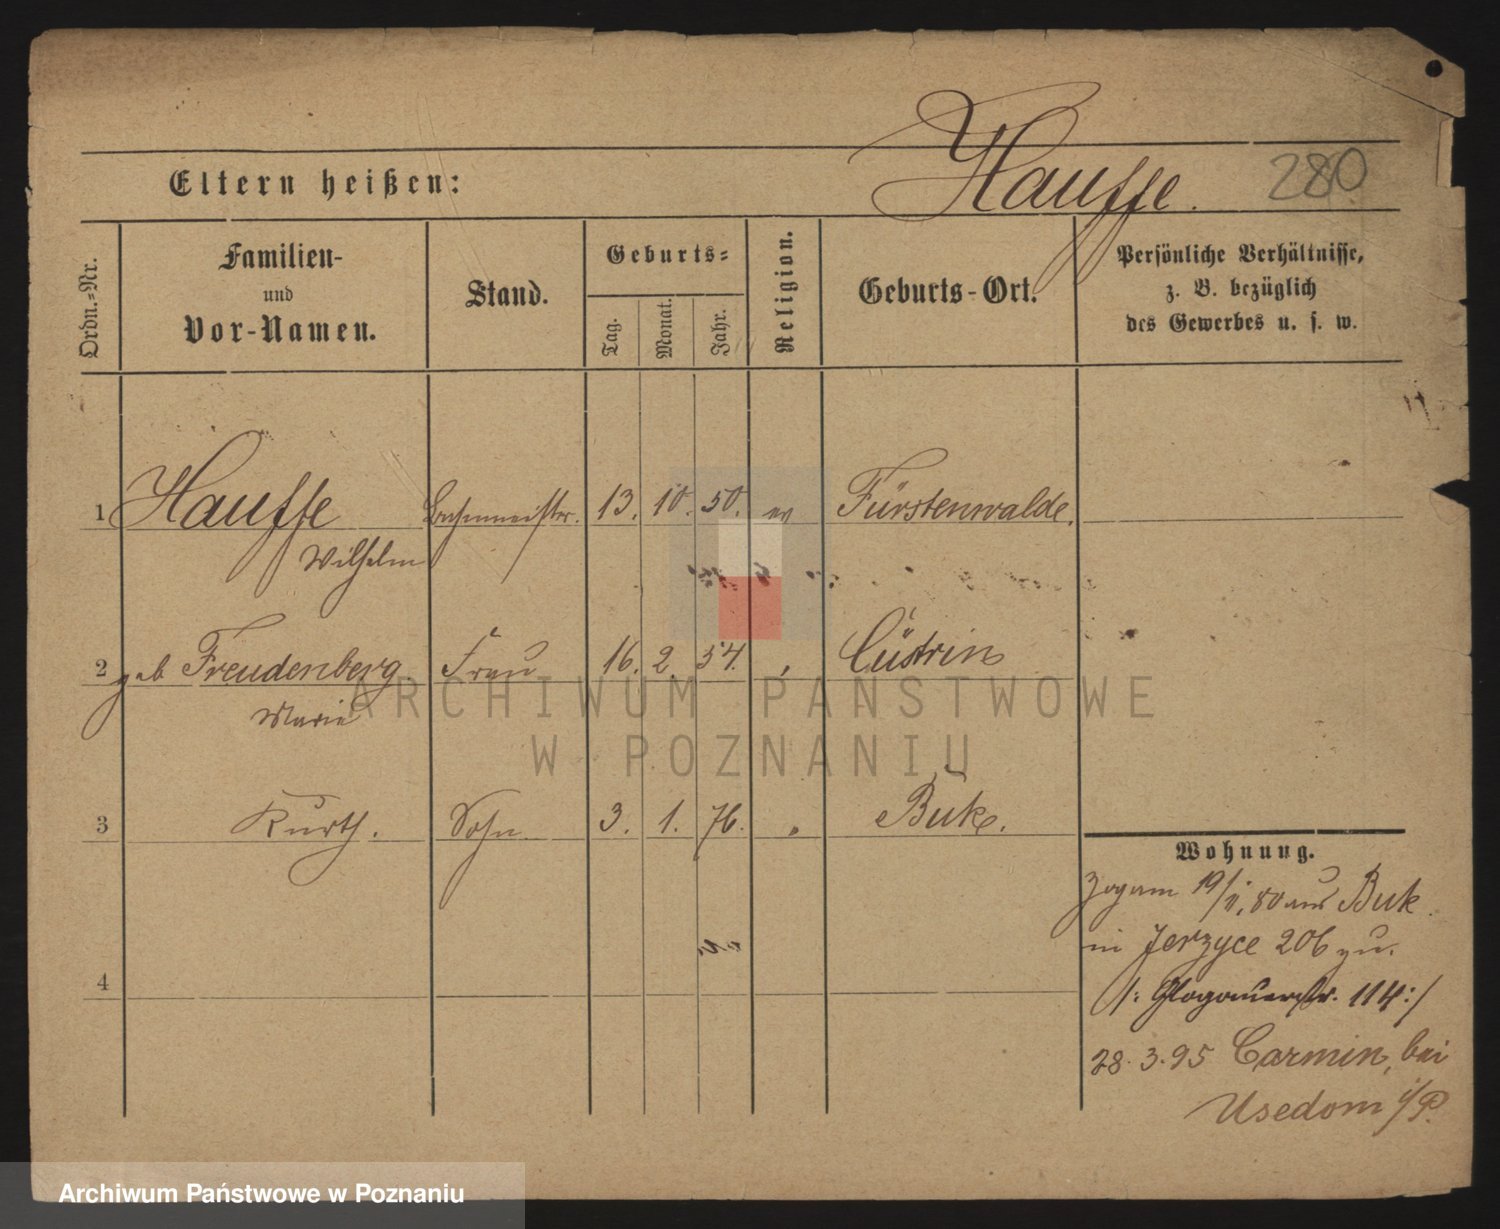 Hauffe. 280
Eltern heißen:
Ordn.=Nr.
Familien-
und
Vor-Namen.
Stand.
Geburts=
Tag.
Monat.
Jahr.
Religion.
Geburts-Ort.
Persönliche Verhältnisse,
z. B. bezüglich
des Gewerbes u. s. w.
1 Hauffe Bahnmeister. 13. 10. 50. ev Fürstenwalde.
Wilhelm
2 geb Freudenberg Frau 16. 2. 54. Cüstrin
Marie
3 Kurth. Sohn 3. 1. 76. Buk.
4
Wohnung.
Zog am 19/11.80 aus Buk
in Jerzyce 206 zu.
/: Glogauerstr. 114 :/
28.3.95 Carmin, bei
Usedom i/P.
ARCHIWUM PAŃSTWOWE
W POZNANIU
Archiwum Państwowe w Poznaniu